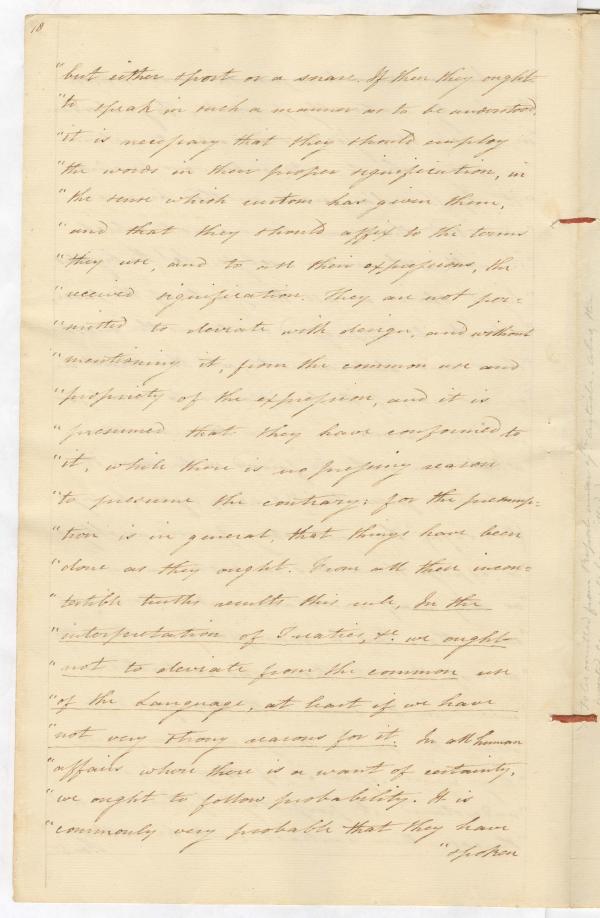 18
"but either sport or a snare. If then they ought
"to speak in such a manner as to be understood,
"it is necessary that they should employ
"the words in their proper signification, in
"the sense which custom has given them,
"and that they should affix to the terms
"they use, and to all their expressions, the
"received signification. They are not per=
"mitted to deviate with design, and without
"mentioning it, from the common use and
"propriety of the expression, and it is
"presumed that they have conformed to
"it, while there is no pressing reason
"to presume the contrary: for the presump=
"tion is in general, that things have been
"done as they ought. From all these incon=
"testible truths results this rule, In the
"interpretation of Treaties, &c. we ought
"not to deviate from the common use
"of the Language, at least if we have
"not very strong reasons for it. In all human
"affairs where there is a want of certainty,
"we ought to follow probability. It is
"commonly very probable that they have
"spoken